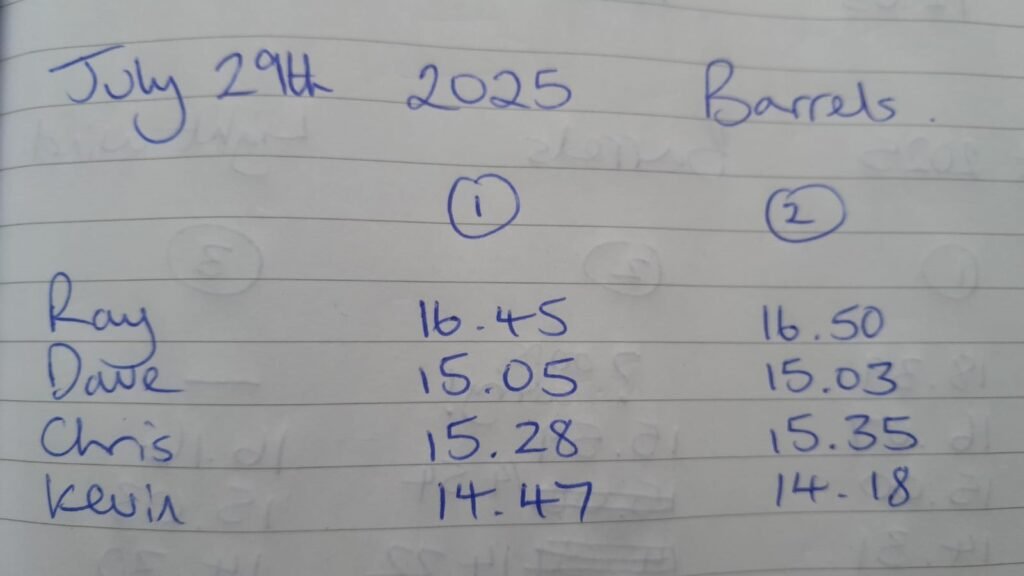 July 29th 2025 Barrels.
① ②
Ray 16.45 16.50
Dave 15.05 15.03
Chris 15.28 15.35
Kevin 14.47 14.18